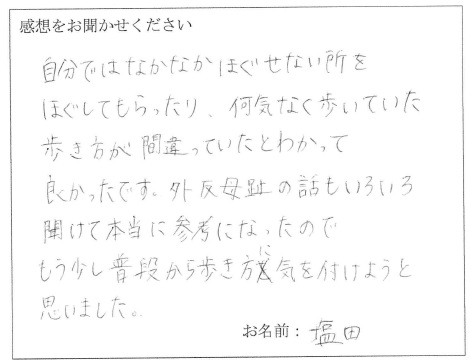 感想をお聞かせください
自分ではなかなかほぐせない所を
ほぐしてもらったり、何気なく歩いていた
歩き方が間違っていたとわかって
良かったです。外反母趾の話もいろいろ
聞けて本当に参考になったので
もう少し普段から歩き方に気を付けようと
思いました。
お名前：塩田